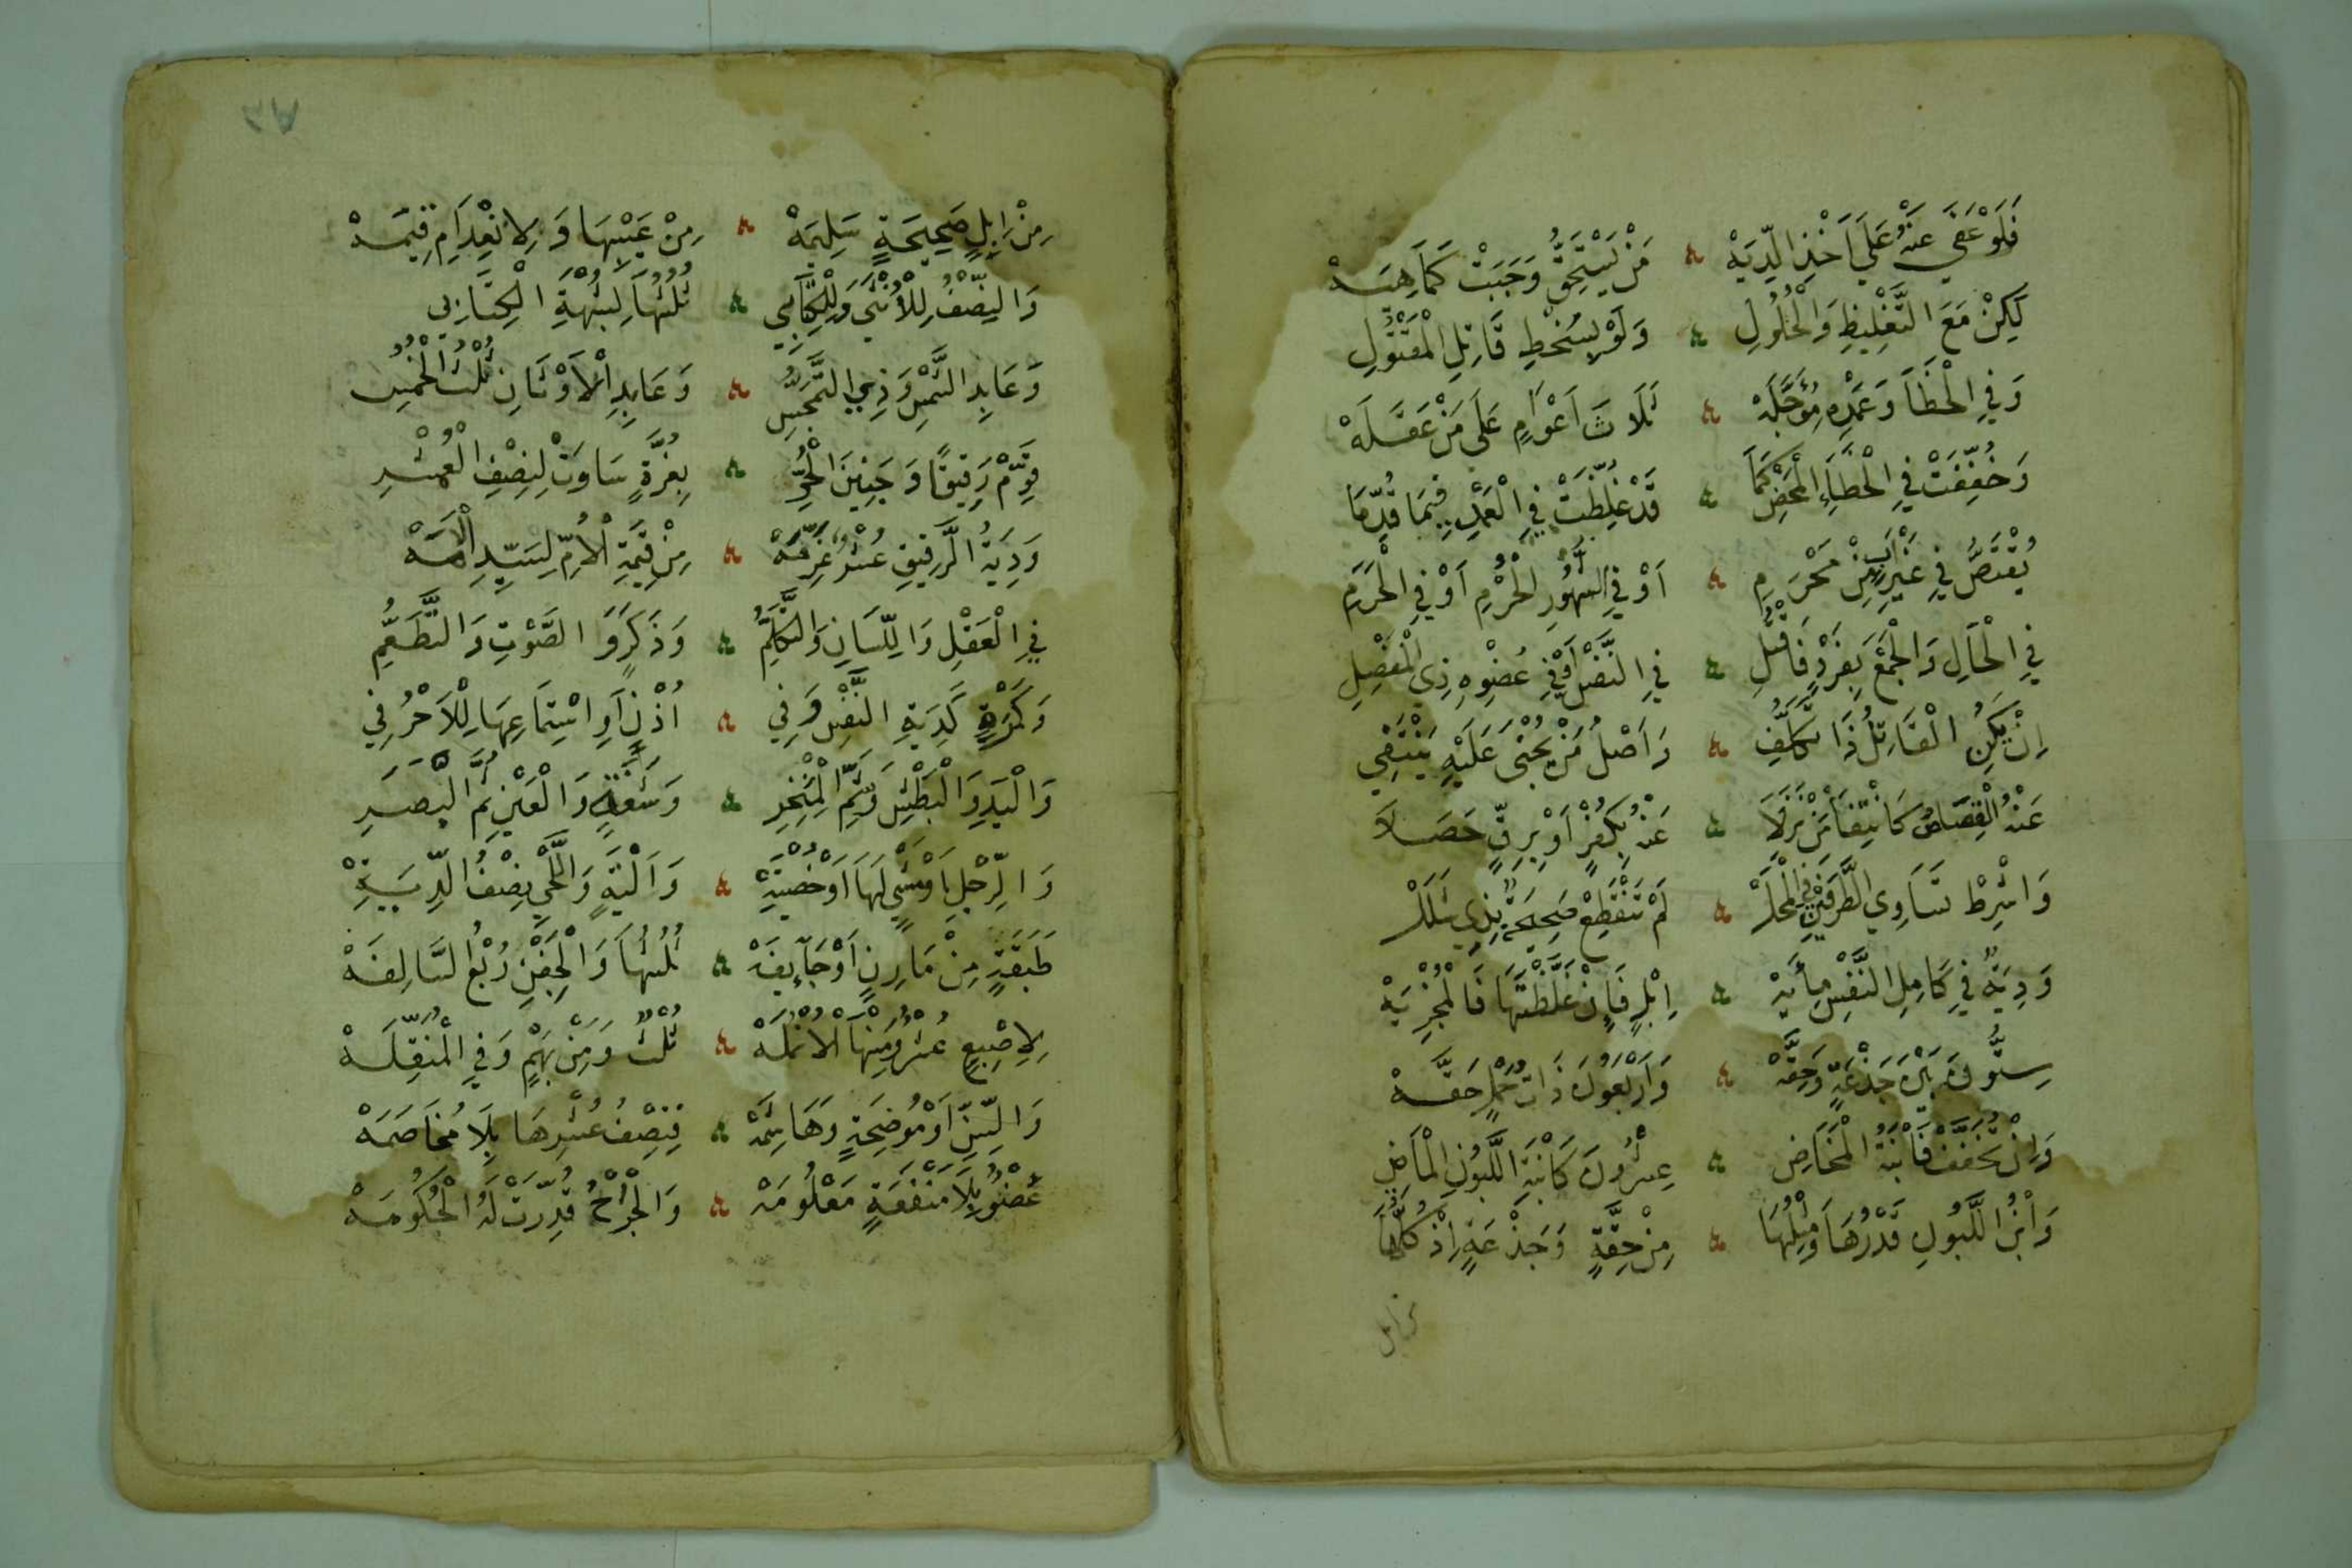 فَلَوْ عَفَى عَنْهُ عَلَى اَخْذِ الدِّيَةْ ۞ مَنْ يَسْتَحِقُّ وَجَبَتْ كَمَا هِيَهْ
لَكِنْ مَعَ التَّغْلِيظِ وَالْحُلُولِ ۞ وَلَوْ بِسُخْطِ قَاتِلِ الْمَقْتُولِ
وَفِي الْخَطَا وَعَمْدِهِ مُؤَجَّلَهْ ۞ ثَلَاثَ اَعْوَامٍ عَلَى مَنْ عَقَلَهْ
وَخُفِّفَتْ فِي الْخَطَاءِ الْمَحْضِ كَمَا ۞ قَدْ غُلِّظَتْ فِي الْعَمْدِ فِيمَا قُدِّمَا
يُقْتَصُّ فِي غَيْرِ اَبٍ مِنْ مَحْرَمِ ۞ اَوْ فِي الشُّهُورِ الْحُرْمِ اَوْ فِي الْحَرَمِ
فِي الْحَالِ وَالْجَمْعَ بِفَرْدٍ فَاقْتُلِ ۞ فِي النَّفْسِ اَوْ فِي عُضْوِهِ ذِي الْمَفْصِلِ
اِنْ يَكُنِ الْقَاتِلُ ذَا تَكَلُّفِ ۞ وَاَصْلُ مَنْ يُجْنَى عَلَيْهِ يَنْتَفِي
عَنْهُ الْقِصَاصُ كَانْتِفَا مَنْ نَزَلَا ۞ عَنْهُ بِكُفْرٍ اَوْ بِرِقٍّ حَصَلَا
وَاشْرِطْ تَسَاوِي الطَّرَفَيْنِ فِي الْمَحَلْ ۞ لَمْ تَنْقَطِعْ صَحِيحَةٌ بِذِي شَلَلْ
وَدِيَةٌ فِي كَامِلِ النَّفْسِ مِأَيَهْ ۞ اِبْلٍ فَاِنْ غَلَّظْتَهَا فَالْمُجْزِيَهْ
سِتُّونَ بَيْنَ جَذْعَةٍ وَحِقَّهْ ۞ وَاَرْبَعُونَ ذَاتُ حَمْلٍ حَقَّهْ
وَاِنْ تُخَفَّفْ فَابْنَةُ الْمَخَاضِ ۞ عِشْرُونَ كَابْنَةِ اللَّبُونِ الْمَاضِي
وَابْنُ اللَّبُونِ قَدْرُهَا وَمِثْلُهَا ۞ مِنْ حِقَّةٍ وَجَذْعَةٍ اِذْ كُلُّهَا
من ابل
مِنْ اِبِلٍ صَحِيحَةٍ سَلِيمَهْ ۞ مِنْ عَيْبِهَا وَلِانْعِدَامِ قِيمَهْ
وَالنِّصْفُ لِلْاُنْثَى وَلِلْكِتَابِي ۞ ثُلُثُهَا لِشُبْهَةِ الْكِتَابِي
وَعَابِدِ الشَّمْسِ وَذِي التَّمَجُّسِ ۞ وَعَابِدِ الْاَوْثَانِ ثُلْثُ الْخُمُسِ
قَوِّمْ رَقِيقًا وَجَنِينَ الْحُرِّ ۞ بِغُرَّةٍ سَاوَتْ لِنِصْفِ الْعُشْرِ
وَدِيَةُ الرَّقِيقِ عُشْرُ غَرِمَهْ ۞ مِنْ قِيمَةِ الْاُمِّ لِسَيِّدِ الْاَمَهْ
فِي الْعَقْلِ وَاللِّسَانِ وَالتَّكَلُّمِ ۞ وَذَكَرٍ وَالصَّوْتِ وَالتَّطَعُّمِ
وَكَمْرَةٍ كَدِيَةِ النَّفْسِ وَفِي ۞ اُذْنٍ اَوِ اسْتِمَاعِهَا لِلْاَحْرُفِي
وَالْيَدِ وَالْبَطْشِ وَشَمِّ الْمَنْخِرِ ۞ وَشَفَةٍ وَالْعَيْنِ ثُمَّ الْبَصَرِ
وَالرِّجْلِ اَوْ مَشْيٍ لَهَا اَوْ خُصْيَةِ ۞ وَاَلْيَةٍ وَاللَّحْيِ نِصْفُ الدِّيَةِ
طَبَقَةٍ مِنْ مَارِنٍ اَوْ جَآيِفَهْ ۞ ثُلُثُهَا وَالْجِفْنِ رُبْعُ السَّالِفَهْ
لِاِصْبِعٍ عُشْرٌ وَمِنْهَا الْاُنْمُلَهْ ۞ ثُلْثٌ وَمِنْ بَهْمٍ وَفِي الْمُنَقِّلَهْ
وَالسِّنِّ اَوْ مُوضِحَةٍ وَهَاشِمَهْ ۞ فَنِصْفُ عُشْرِهَا بِلَا مُخَاصَمَهْ
عُضْوٌ بِلَا مَنْفَعَةٍ مَعْلُومَهْ ۞ وَالْجُرْحُ قُدِّرَتْ لَهُ الْحُكُومَهْ